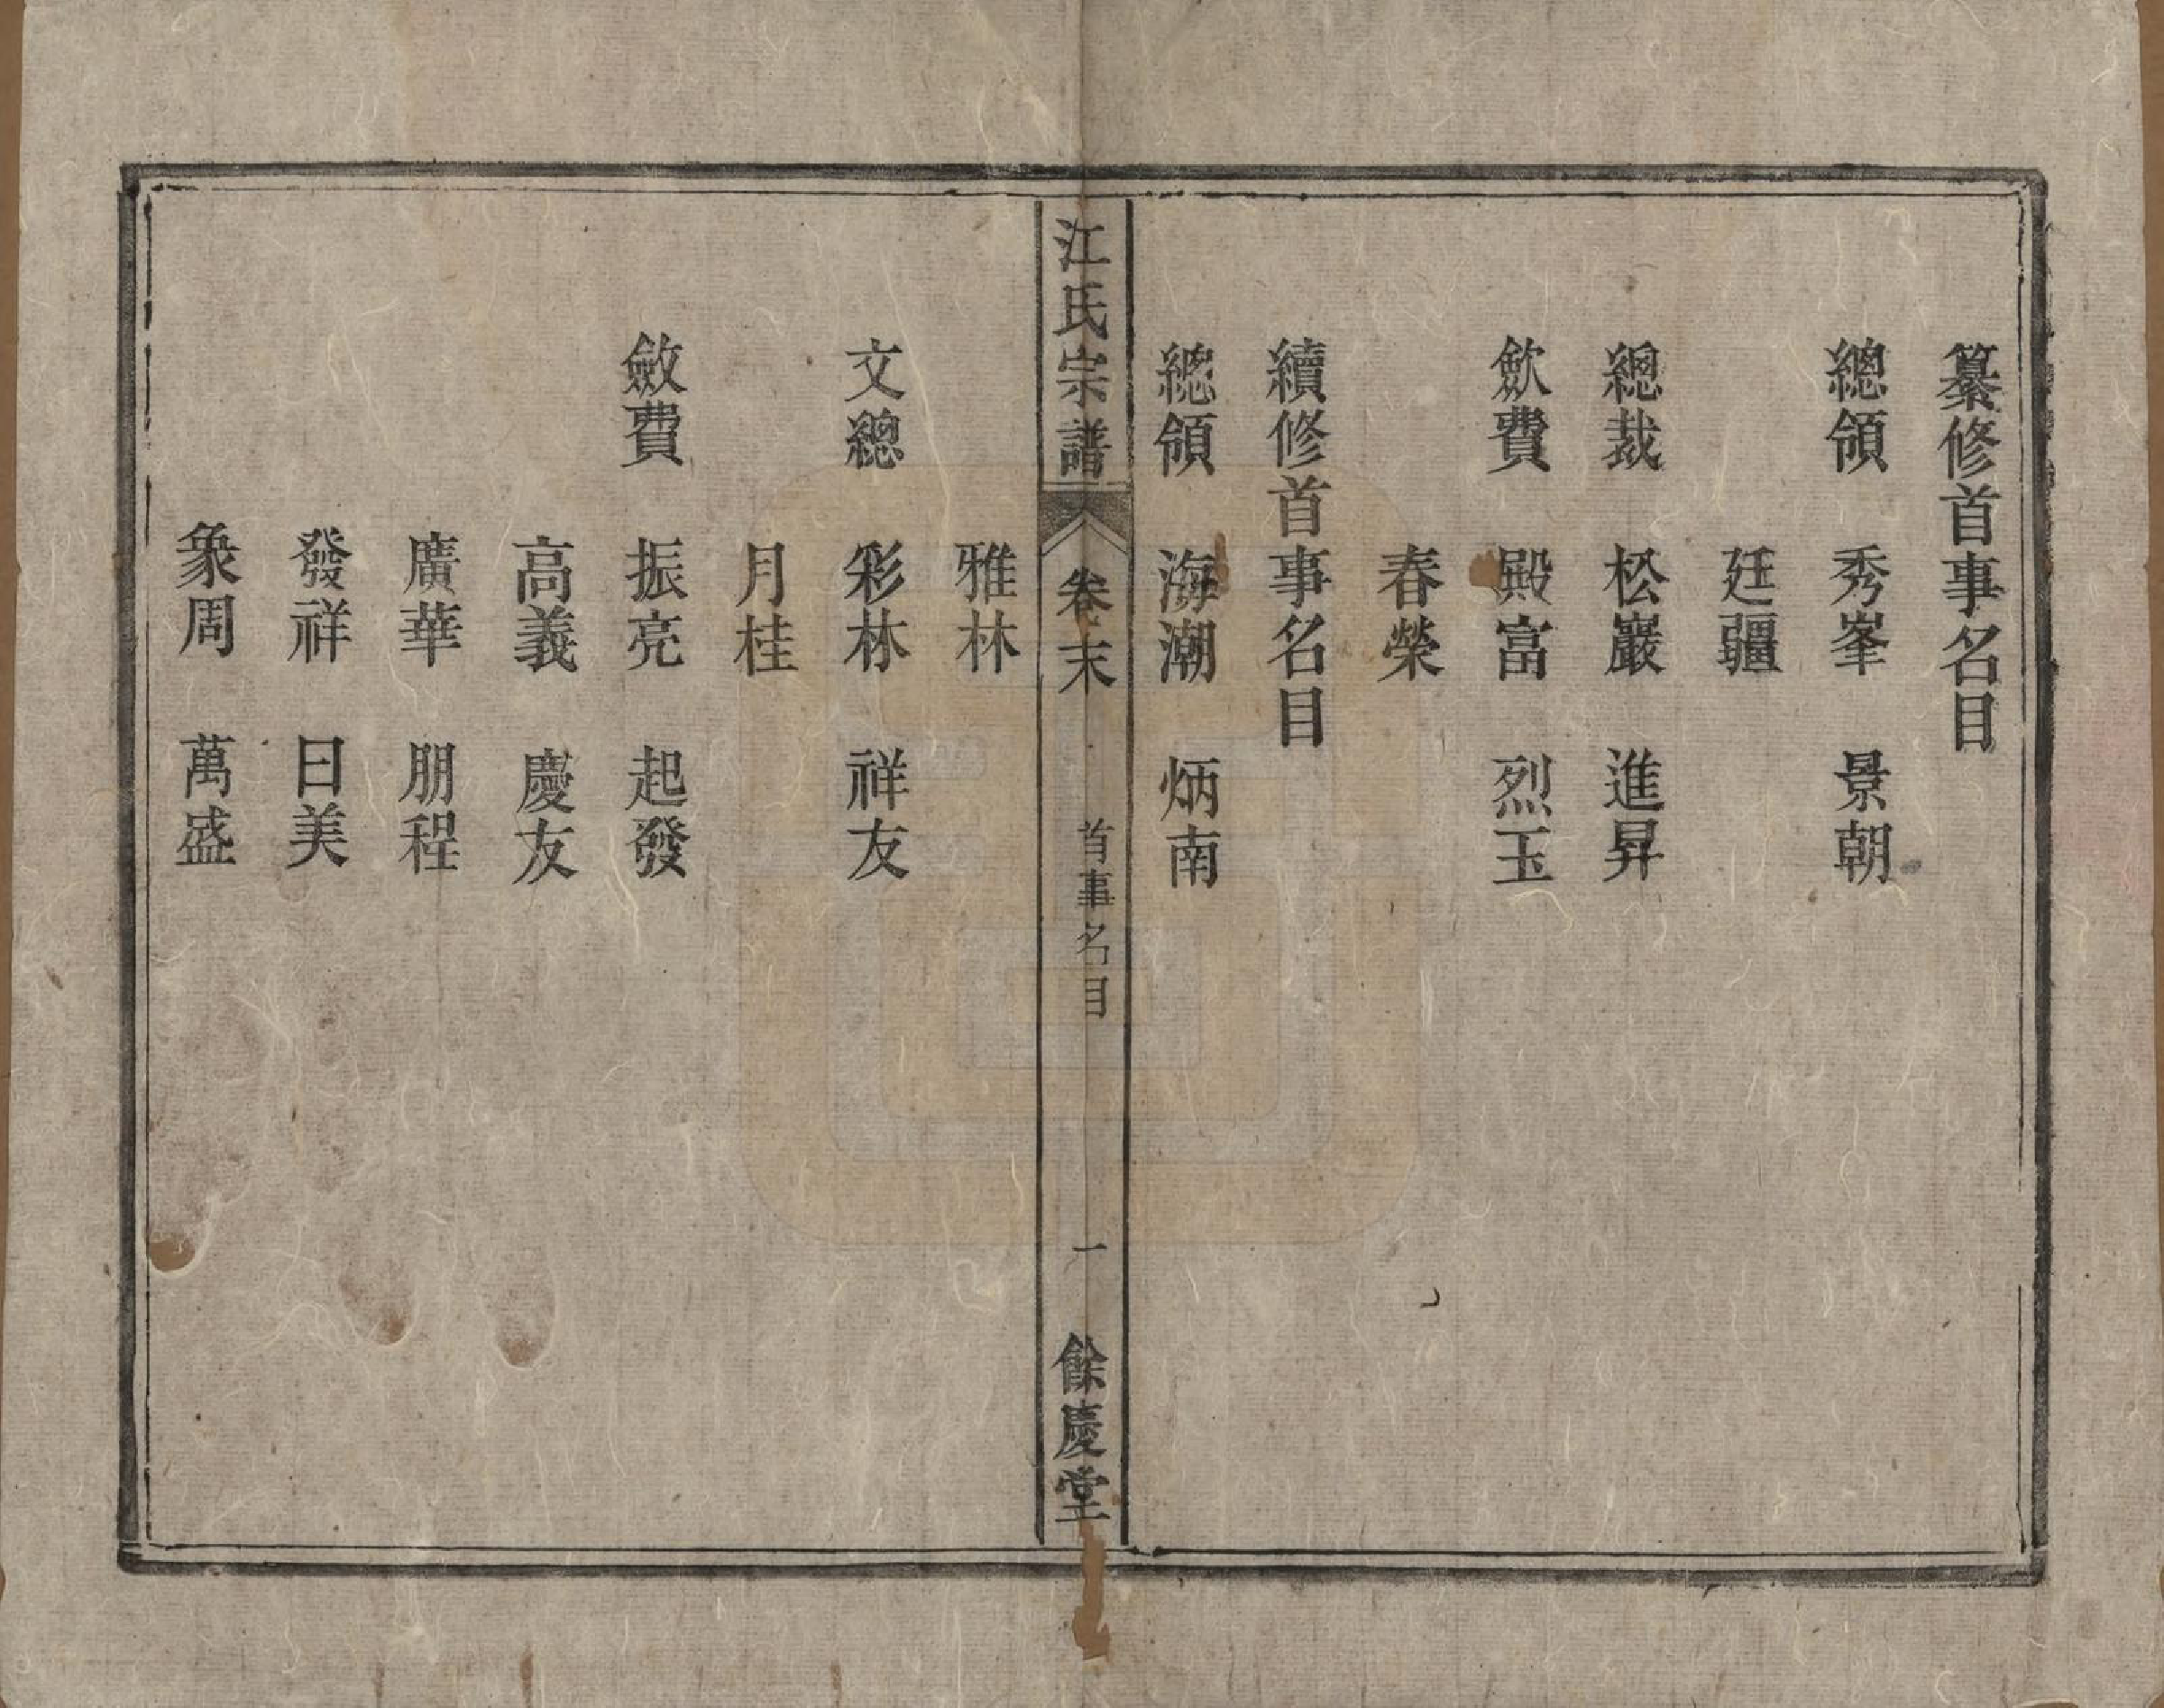 纂修首事名目
總領 秀峯 景朝
廷疆
總裁 松巖 進昇
歛費 殿富 烈玉
春榮
續修首事名目
總領 海潮 炳南
江氏宗譜 卷末 首事名目 一 餘慶堂
雅林
文總 彩林 祥友
月桂
斂費 振亮 起發
高義 慶友
廣華 朋程
發祥 日美
象周 萬盛